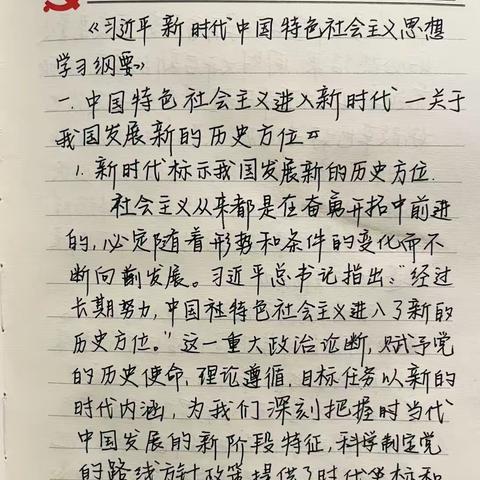 《习近平新时代中国特色社会主义思想
学习纲要》
一.中国特色社会主义进入新时代—关于
我国发展新的历史方位
1.新时代标示我国发展新的历史方位.
社会主义从来都是在奋勇开拓中前进
的,必定随着形势和条件的变化而不
断向前发展。习近平总书记指出:"经过
长期努力,中国社特色社会主义进入了新的
历史方位。"这一重大政治论断,赋予党
的历史使命,理论遵循,目标任务以新的
时代内涵,为我们深刻把握时当代
中国发展的新阶段特征,科学制定党
的路线方针政策提供了时代坐标和